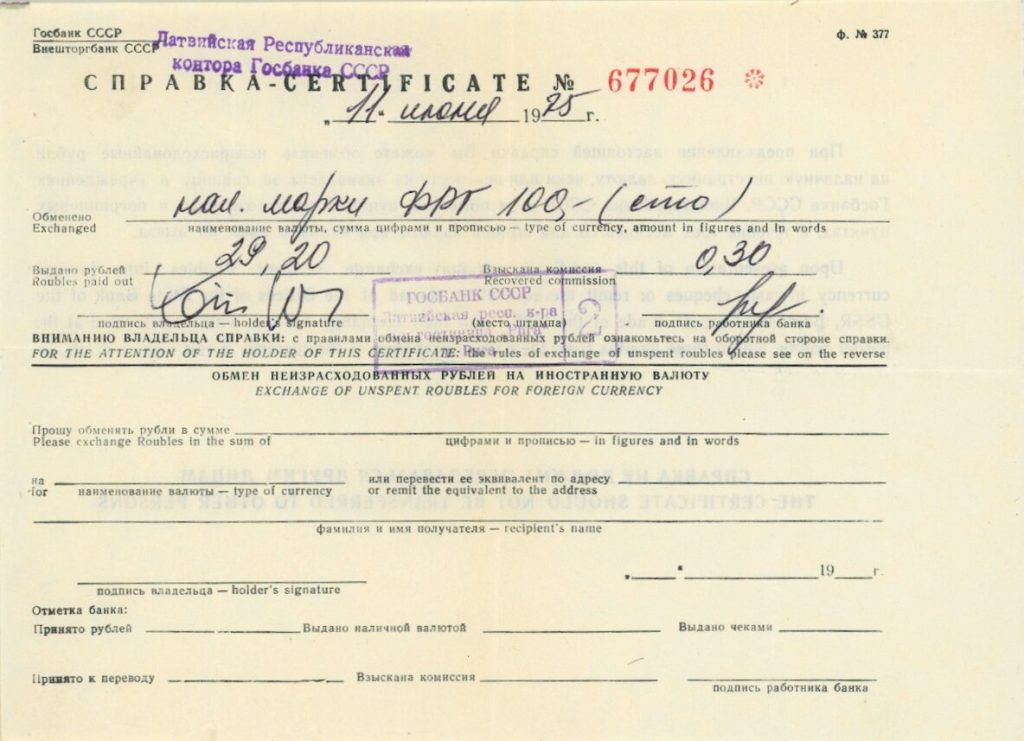 Госбанк СССР
Внешторгбанк СССР
ф. № 377
Латвийская Республиканская
контора Госбанка СССР
СПРАВКА-CERTIFICATE № 677026
„ 11 “ июня 1975 г.
Обменено нал. марки ФРГ 100,- (сто)
Exchanged наименование валюты, сумма цифрами и прописью — type of currency, amount in figures and in words
Выдано рублей 29,20 Взыскана комиссия 0,30
Roubles paid out Recovered commission
ГОСБАНК СССР
Латвийская респ. к-ра
гостиница „Рига“
г. Рига
2
подпись владельца — holder's signature (место штампа) подпись работника банка
ВНИМАНИЮ ВЛАДЕЛЬЦА СПРАВКИ: с правилами обмена неизрасходованных рублей ознакомьтесь на оборотной стороне справки.
FOR THE ATTENTION OF THE HOLDER OF THIS CERTIFICATE: the rules of exchange of unspent roubles please see on the reverse
ОБМЕН НЕИЗРАСХОДОВАННЫХ РУБЛЕЙ НА ИНОСТРАННУЮ ВАЛЮТУ
EXCHANGE OF UNSPENT ROUBLES FOR FOREIGN CURRENCY
Прошу обменять рубли в сумме
Please exchange Roubles in the sum of цифрами и прописью — in figures and in words
на или перевести ее эквивалент по адресу
for наименование валюты — type of currency or remit the equivalent to the address
фамилия и имя получателя — recipient's name
„ “ 19 г.
подпись владельца — holder's signature
Отметка банка:
Принято рублей Выдано наличной валютой Выдано чеками
Принято к переводу Взыскана комиссия
подпись работника банка